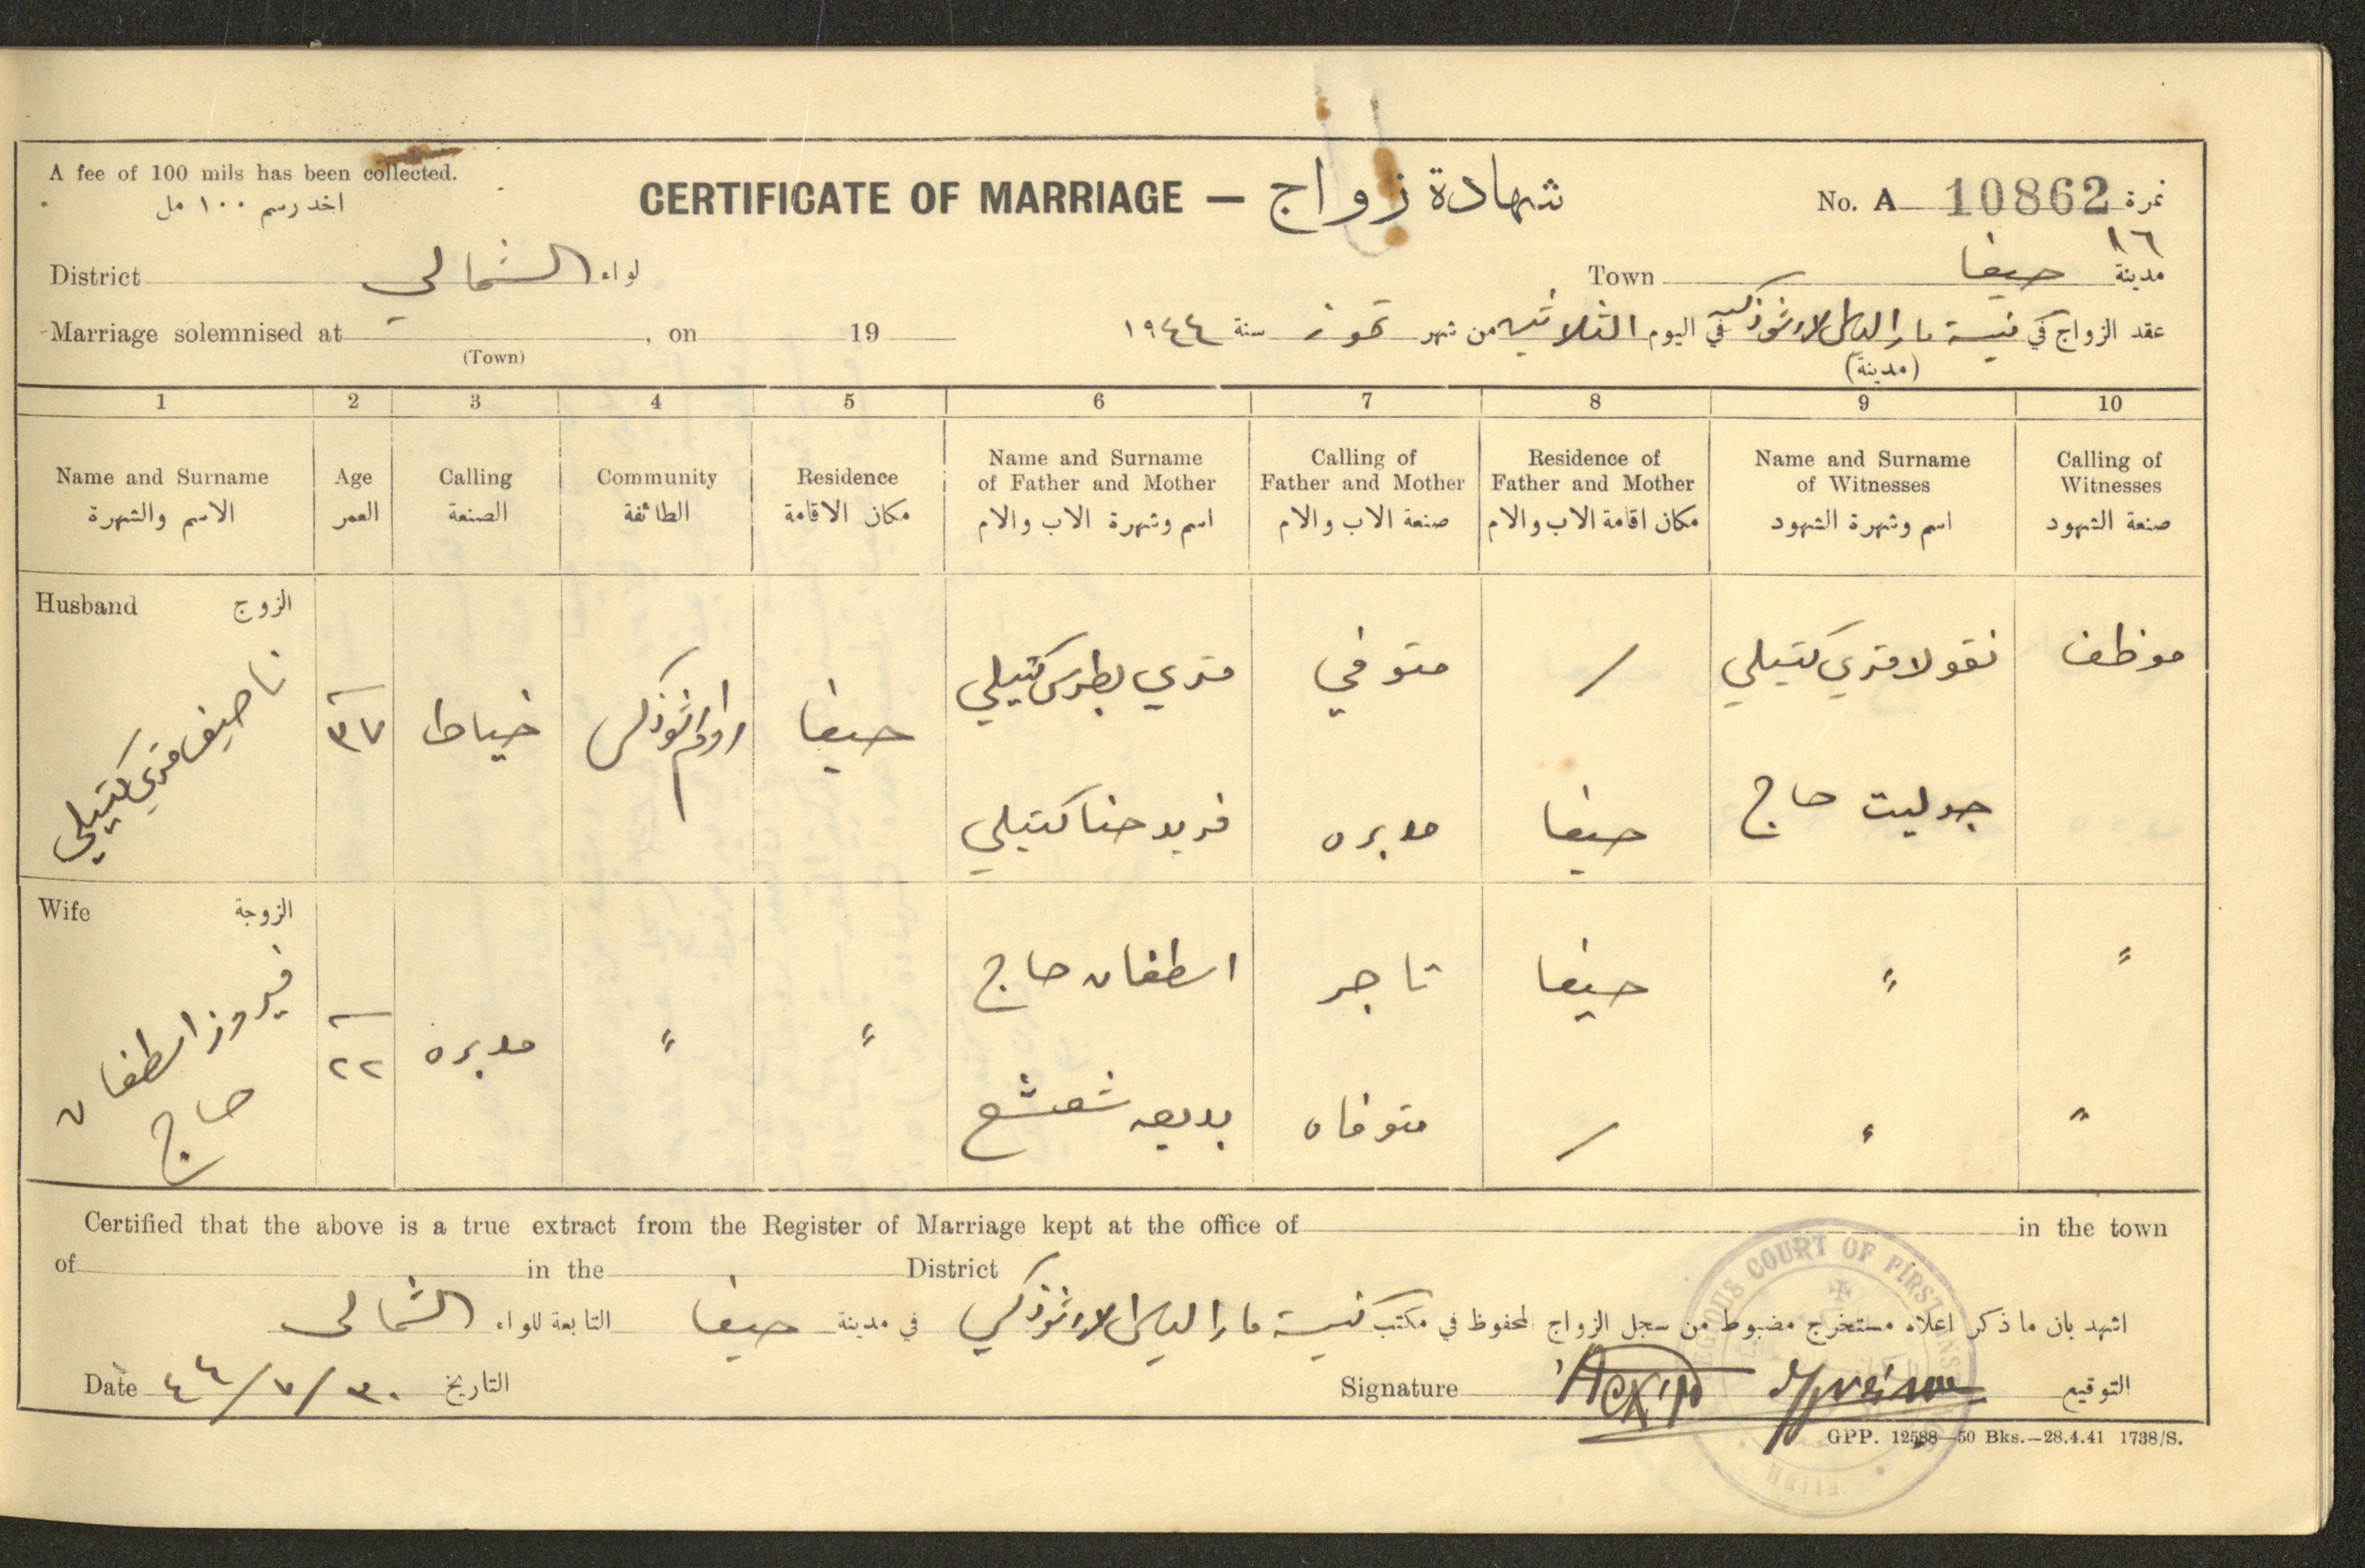 A fee of 100 mils has been collected.
اخذ رسم ١٠٠ مل
CERTIFICATE OF MARRIAGE — شهادة زواج
No. A 10862 نمرة
١٦
District الشمالي لواء
Town حيفا مدينة
Marriage solemnised at , on 19
(Town)
عقد الزواج في كنيسة مار الياس الارثوذكسية في اليوم الثلاثين من شهر تموز سنة ١٩٤٤
(مدينة)
1 2 3 4 5 6 7 8 9 10
Name and Surname الاسم والشهرة
Age العمر
Calling الصنعة
Community الطائفة
Residence مكان الاقامة
Name and Surname of Father and Mother اسم وشهرة الاب والام
Calling of Father and Mother صنعة الاب والام
Residence of Father and Mother مكان اقامة الاب والام
Name and Surname of Witnesses اسم وشهرة الشهود
Calling of Witnesses صنعة الشهود
Husband الزوج
ناصيف متري كتيلي
٣٧
خياط
روم ارثوذكس
حيفا
متري بطرس كتيلي
متوفي
/
نقولا متري كتيلي
موظف
فريد حنا كتيلي
مدبره
حيفا
جوليت حاج
Wife الزوجة
فيروز اسطفان
حاج
٢٢
مدبره
〃
〃
اسطفان حاج
تاجر
حيفا
〃
〃
بديعه شعشع
متوفاه
/
〃
〃
Certified that the above is a true extract from the Register of Marriage kept at the office of in the town
of in the District
اشهد بان ما ذكر اعلاه مستخرج مضبوط من سجل الزواج المحفوظ في مكتب كنيسة مار الياس الارثوذكسي في مدينة حيفا التابعة للواء الشمالي
Date ٣٠/٧/٤٤ التاريخ
Signature التوقيع
COURT OF FIRST INS
GPP. 12588—50 Bks.—28.4.41 1738/S.